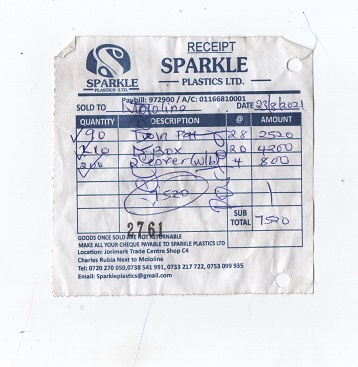 RECEIPT
SPARKLE
PLASTICS LTD.
SPARKLE
PLASTICS LTD.
Paybill: 972900 / A/C: 01166810001
SOLD TO Mololine DATE 23/8/2021
QUANTITY DESCRIPTION @ AMOUNT
90 28 2520
210 Box 20 4200
200 2 cover (w/b) 4 800
7520
SUB TOTAL 7520
2761
GOODS ONCE SOLD ARE NOT RETURNABLE
MAKE ALL YOUR CHEQUE PAYABLE TO SPARKLE PLASTICS LTD
Location: Jorimark Trade Centre Shop C4
Charles Rubia Next to Mololine
Tel: 0720 270 050,0738 541 991, 0733 217 722, 0753 099 935
Email: Sparkleplastics@gmail.com